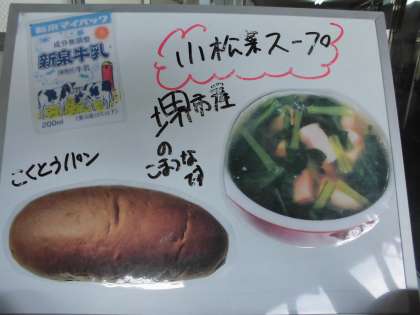 新泉マイパック
成分無調整
新泉牛乳
200ml
小松菜スープ
堺市産
の
こまつな
です
こくとうパン